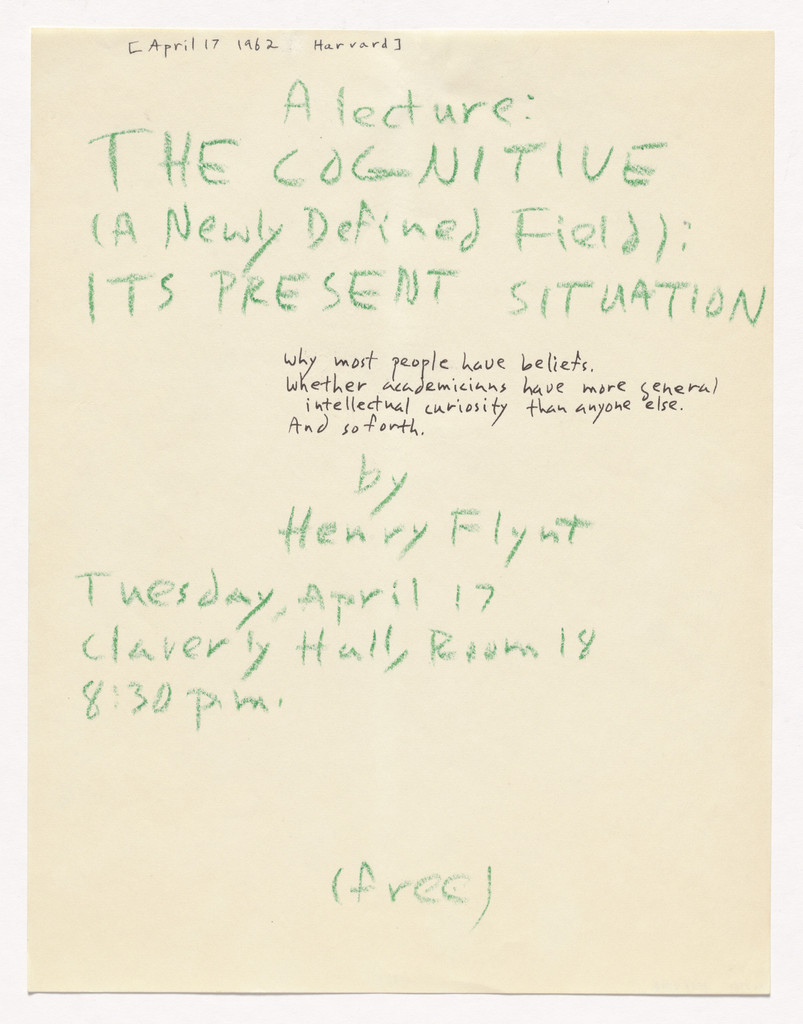 [April 17 1962 Harvard]
A lecture:
THE COGNITIVE
(A Newly Defined Field):
ITS PRESENT SITUATION
Why most people have beliefs.
Whether academicians have more general
intellectual curiosity than anyone else.
And so forth.
by
Henry Flynt
Tuesday, April 17
Claverly Hall, Room 18
8:30 p.m.
(free)